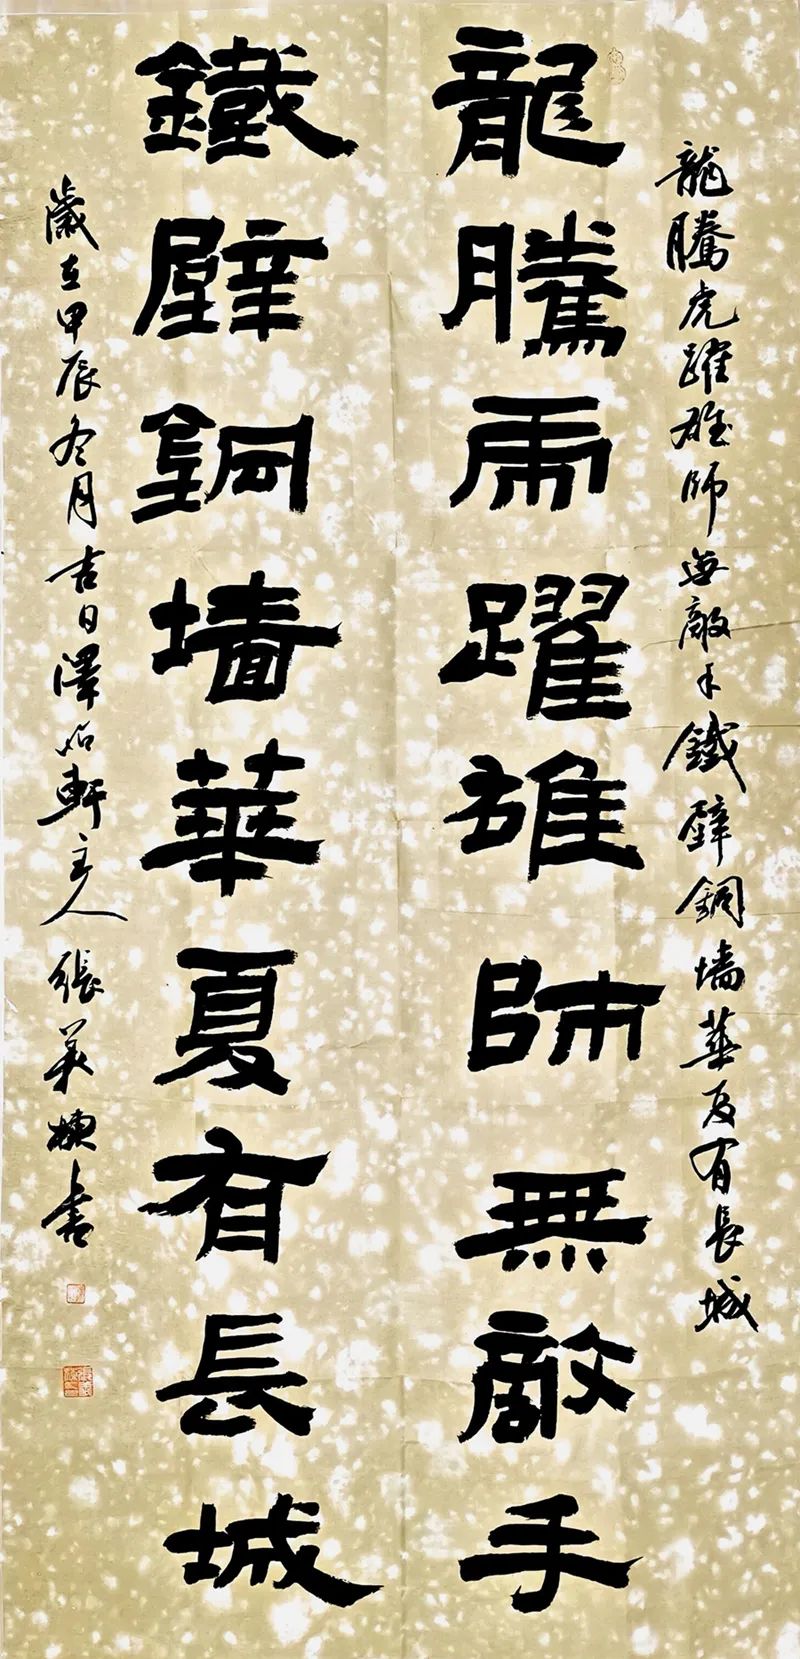 龍騰虎躍雄師無敵手鐵壁銅墙華夏有長城
龍騰虎躍雄師無敵手
鐵壁銅墙華夏有長城
歲在甲辰冬月吉日澤軒主人張美書